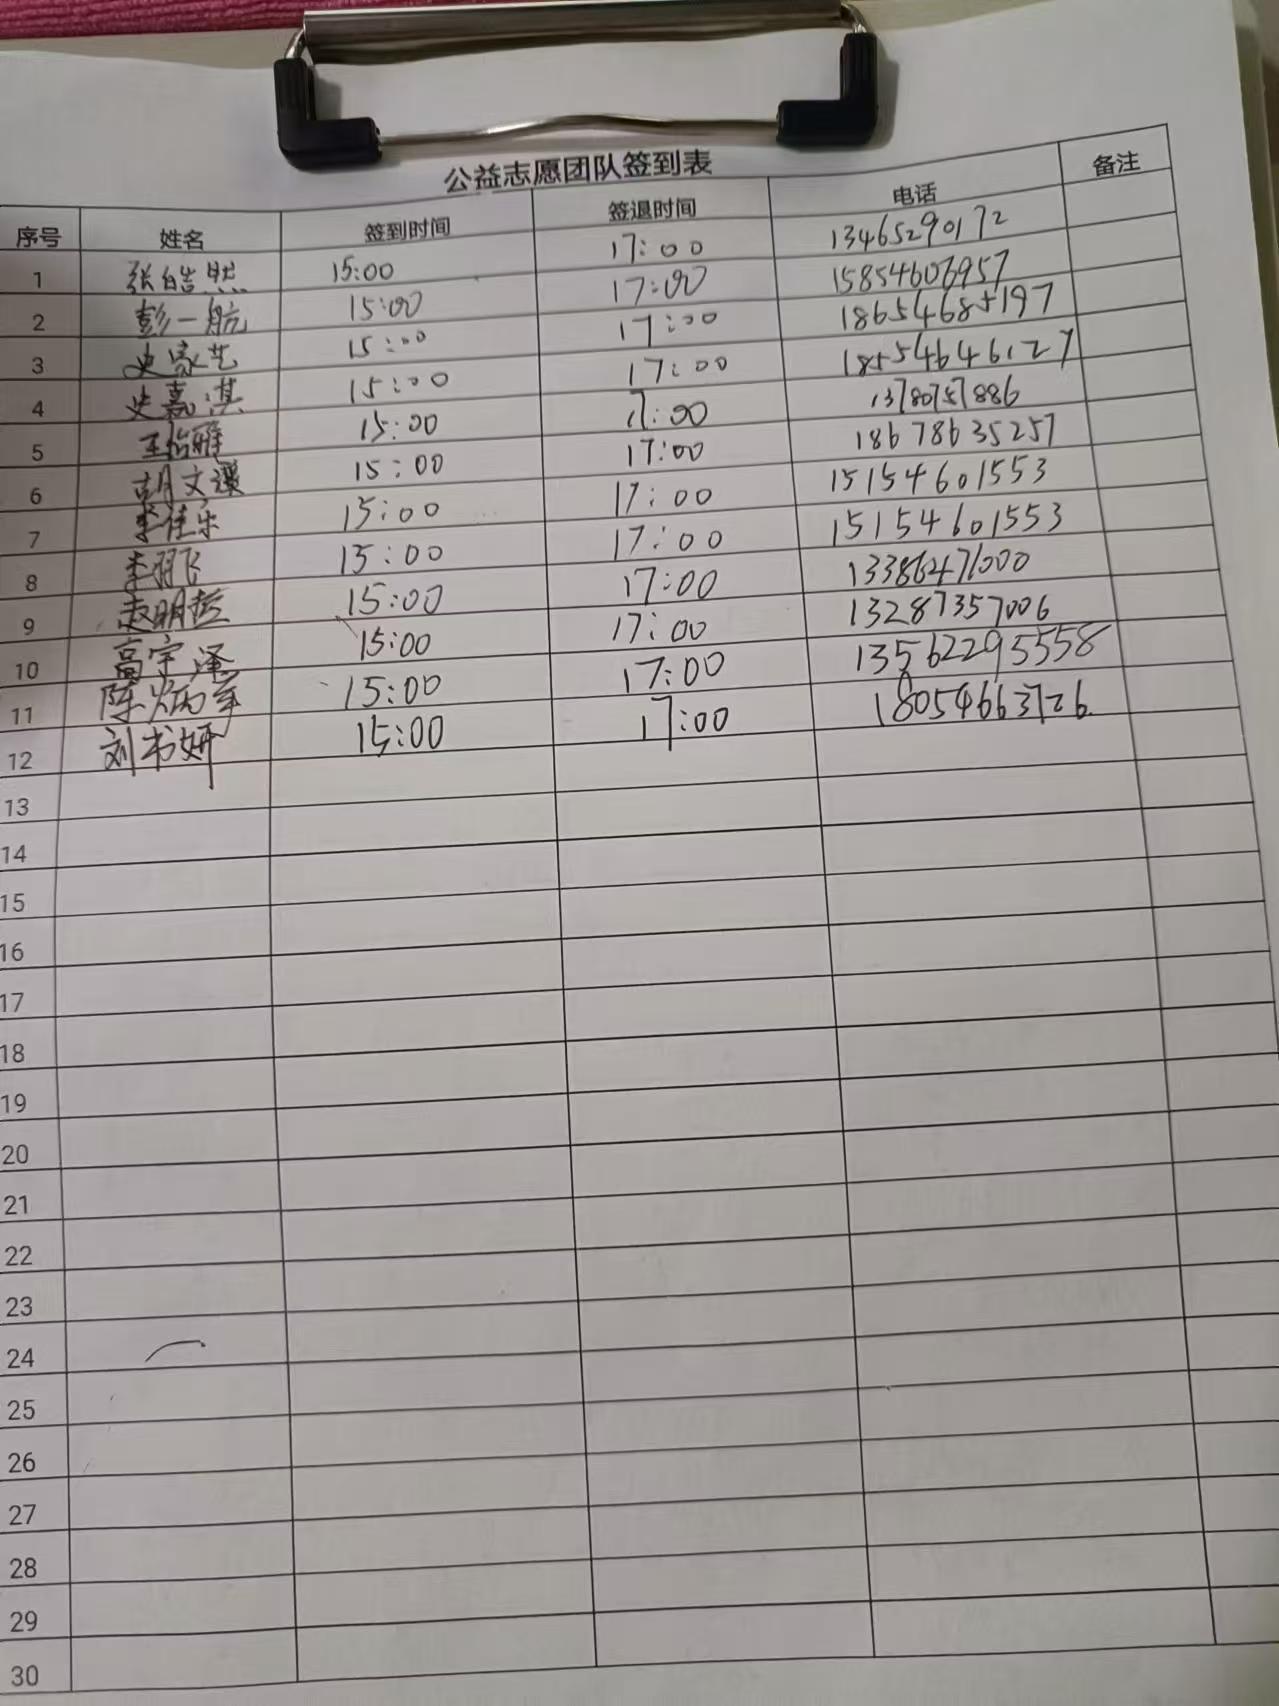 公益志愿团队签到表
序号 姓名 签到时间 签退时间 电话 备注
1 张皓然 15:00 17:00 13465290172
2 彭一航 15:00 17:00 15854606957
3 史家艺 15:00 17:00 18654685197
4 史嘉淇 15:00 17:00 18554646127
5 王怡雅 15:00 17:00 13780757886
6 胡文 15:00 17:00 18678635257
7 李佳乐 15:00 17:00 15154601553
8 李羽飞 15:00 17:00 15154601553
9 赵明哲 15:00 17:00 13386471000
10 高宇泽 15:00 17:00 13287357006
11 陈炳军 15:00 17:00 13562295558
12 刘书妍 15:00 17:00 18054663726
13
14
15
16
17
18
19
20
21
22
23
24
25
26
27
28
29
30